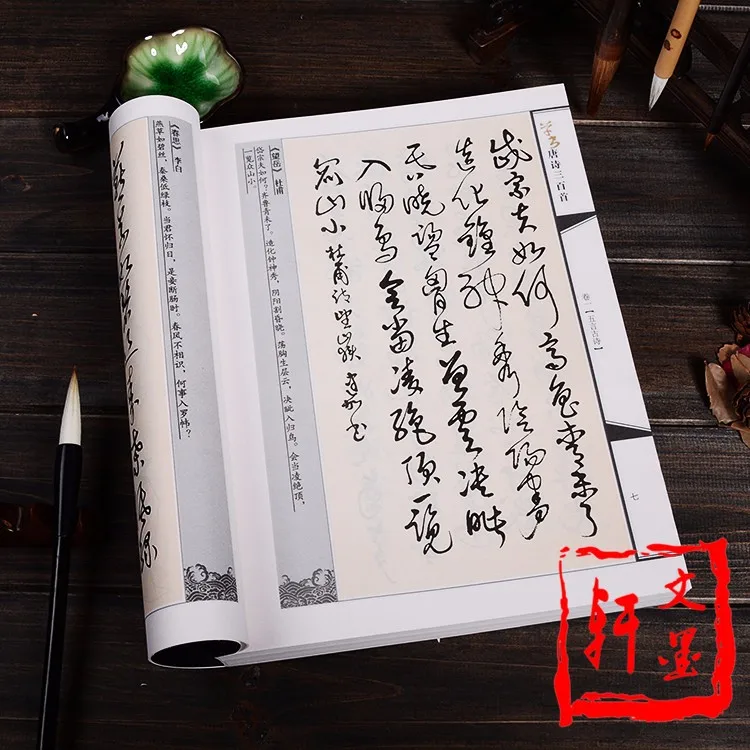 草书唐诗三百首
卷一【五言古诗】
七
岱宗夫如何齊魯青未了
造化鍾神秀陰陽割
昏曉盪胸生曾雲決眥
入歸鳥會當凌絕頂一覽
眾山小 杜甫詩望嶽 書
《望岳》 杜甫
岱宗夫如何?齐鲁青未了。造化钟神秀,阴阳割昏晓。荡胸生层云,决眦入归鸟。会当凌绝顶,
一览众山小。
《春思》 李白
燕草如碧丝,秦桑低绿枝。当君怀归日,是妾断肠时。春风不相识,何事入罗帏?
文墨轩